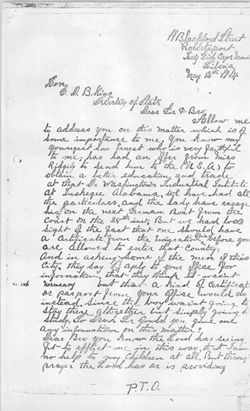 Blackford Street
Robertsport
Liberia
May 13th 1914
Hon
C. D. B. King
Secretary of State
Dear Sir & Bro,
Allow me
to address you on this matter which is of
some importance to me, You know my
youngest son Trust who is very faithful
to me, has had an offer from Miss
to send him to the (U. S. A) to
obtain a better education and trade
at that Dr Washington Industrial Institute
at Tuskegee Alabama, We have had all
the particulars, and the lady have engage
his on the next German boat from the
Coast on the 28th inst, But we had lost
sight of the fact that one should have
a Certificate from the before you
are allowed to enter that Country,
And in asking some of the men of this
City, they say to apply to your Office for
information, that they think was't
necessary but that a kind of Certificate
or passport from your Office would do
instead, since the boy wasn't going to
stay there altogether but simply going to
study, So Dear Sir Could you give me
any information on this matter?
Dear Bro you know the Lord has seeing
fit to afflict me in this way, that I am
no help to my Children at all, But through
prayer the Lord has or is providing
P. T. O.